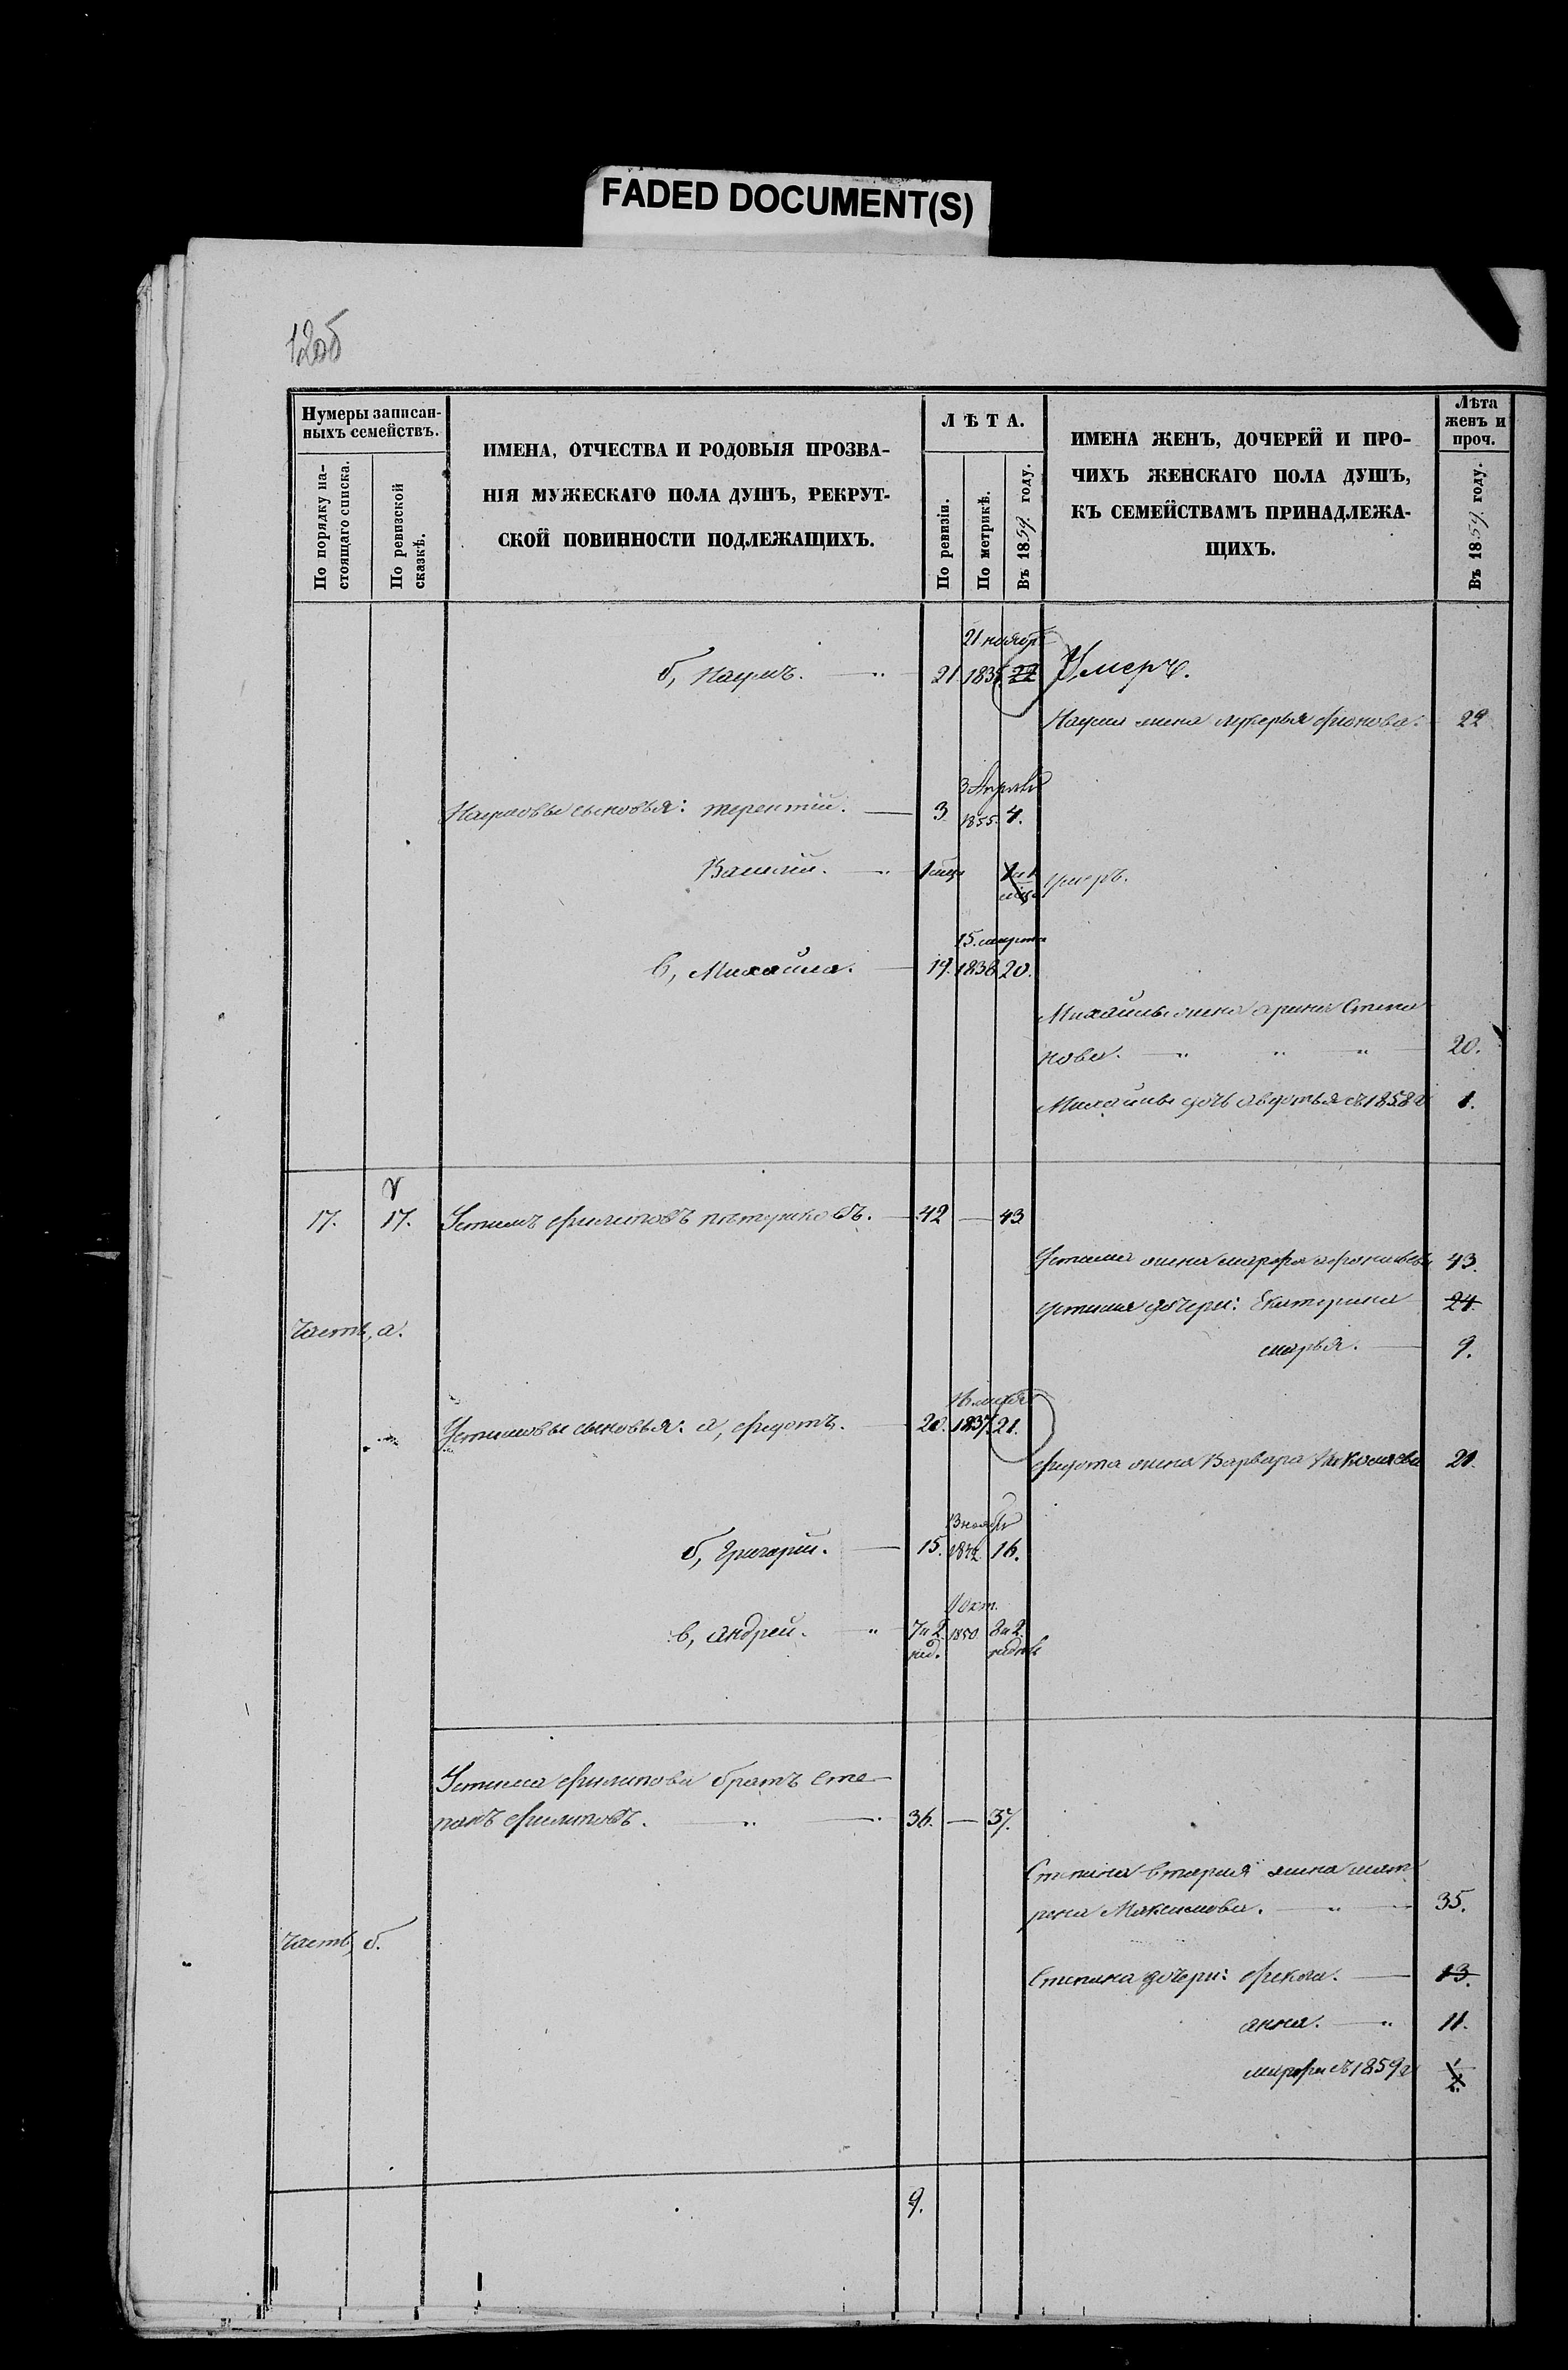 FADED DOCUMENT(S)
12об
Нумеры записан-
ныхъ семействъ.
По порядку на-
стоящаго списка.
По ревизской
сказкѣ.
ИМЕНА, ОТЧЕСТВА И РОДОВЫЯ ПРОЗВА-
НІЯ МУЖЕСКАГО ПОЛА ДУШЪ, РЕКРУТ-
СКОЙ ПОВИННОСТИ ПОДЛЕЖАЩИХЪ.
ЛѢТА.
По ревизіи.
По метрикѣ.
Въ 1859 году.
ИМЕНА ЖЕНЪ, ДОЧЕРЕЙ И ПРО-
ЧИХЪ ЖЕНСКАГО ПОЛА ДУШЪ,
КЪ СЕМЕЙСТВАМЪ ПРИНАДЛЕЖА-
ЩИХЪ.
Лѣта
женъ и
проч.
Въ 1859 году.
21 нояб
б, Наумъ. 21. 22 Умеръ.
Наума жена лукерья 22
3 Апрѣля
Наумовы сыновья: терентій. 3. 1855. 4.
Василій. умеръ.
15. марта
в, Михайла. 19. 20.
Михайлы жена арина Степа
нова. 20.
Михайлы дочь авдотья съ 1858 г 1.
17. 17. Устимъ филиповъ 42 — 43
Устима жена марфа 43.
Устима дочери: Екатерина 24.
Часть, а.
марья. 9.
Устимовы сыновья: а, федотъ. 20. 1837. 21.
федота жена Варвара Николаева 21.
13 нояб
б, Григорій. 15. 16.
1 Окт.
в, андрей. 7 и 2 1850 8 и 2
нед.
Устима филипова братъ Сте-
панъ филиповъ. 36. — 37.
Степана вторая жена мат
рена Максимова. 35.
Часть, б.
Степана дочери: фекла. 13.
анна. 11.
марфа съ 1859 г
9.